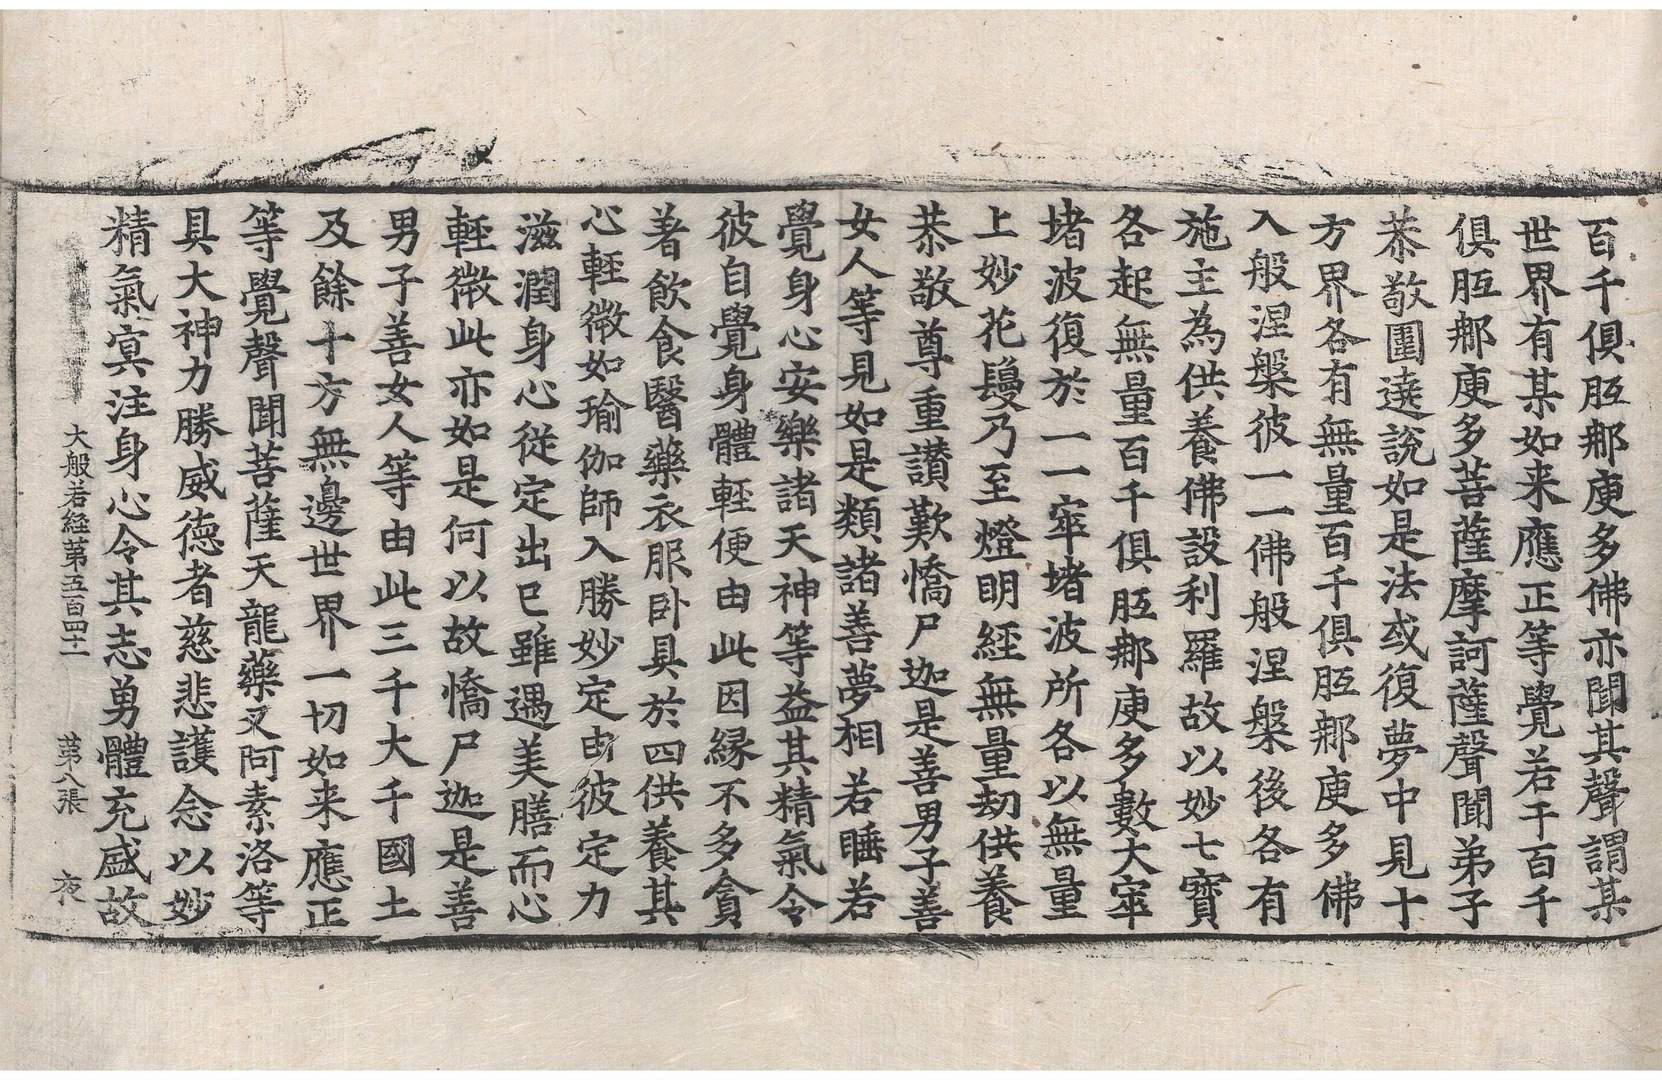 百千俱胝那庾多佛亦聞其聲謂某
世界有某如来應正等覺若干百千
俱胝那庾多菩薩摩訶薩聲聞弟子
恭敬圍遶說如是法或復夢中見十
方界各有無量百千俱胝那庾多佛
入般涅槃彼一一佛般涅槃後各有
施主為供養佛設利羅故以妙七寶
各起無量百千俱胝那庾多數大窣
堵波復於一一窣堵波所各以無量
上妙花鬘乃至燈明經無量劫供養
恭敬尊重讃歎憍尸迦是善男子善
女人等見如是類諸善夢相若睡若
覺身心安樂諸天神等益其精氣令
彼自覺身體輕便由此因緣不多貪
著飲食醫藥衣服卧具於四供養其
心輕微如瑜伽師入勝妙定由彼定力
滋潤身心從定出已雖遇美膳而心
輕微此亦如是何以故憍尸迦是善
男子善女人等由此三千大千國土
及餘十方無邊世界一切如来應正
等覺聲聞菩薩天龍藥叉阿素洛等
具大神力勝威德者慈悲護念以妙
精氣㝠注身心令其志勇體充盛故
大般若経第五百四十一 第八張 夜